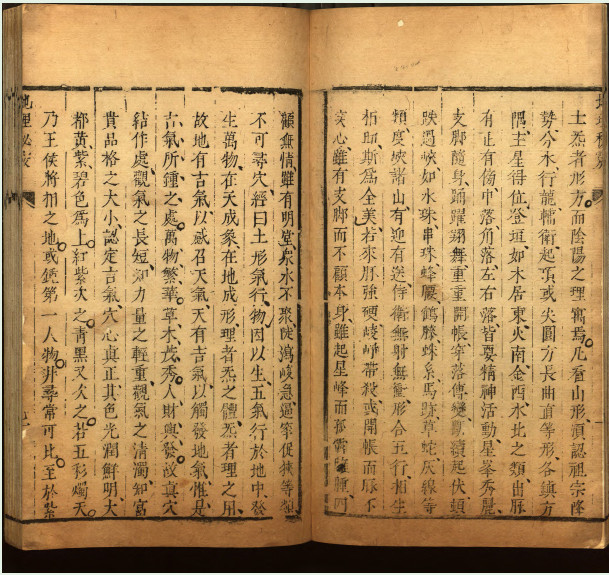 土炁者形方而陰陽之理寓焉凡看山形須認祖宗降
勢今水行龍檽衛起頂或尖圓方長曲直等形各鎮方
隅主星得位登垣如木居東火南金西水北之類出脈
有正有傍中落角落左右落皆要精神活動星峯秀麗
支脚隨身踴躍翔舞重重開帳穿落傳變斷續起伏頭
跌過峽如水珠串珠蜂腰鶴膝蛛絲馬跡草蛇灰線等
類度峽諸山有迎有送侍衛無射無衝形合五行相生
相助斯為全美若來脈強硬崚嶒帶殺或開帳而脈不
穿心雖有支脚而不顧本身雖起星峰而
顧無情雖有明堂衆水不聚陡瀉峻急逼窄促狹等類
不可尋穴經曰土形氣行物因以生五氣行於地中發
生萬物在天成象在地成形理者炁之體炁者理之用
故地有吉氣以感召天氣天有吉氣以觸發地氣惟是
吉氣所鍾之處萬物繁華草木茂秀人財興發故真穴
結作處觀氣之長短知力量之輕重觀氣之清濁知富
貴品格之大小認定吉氣穴心真正其色光潤鮮明大
都黃紫碧色為上紅紫次之青黑又次之若五彩燭天
乃王侯將相之地或鍾第一人物非尋常可比至於紮
地理